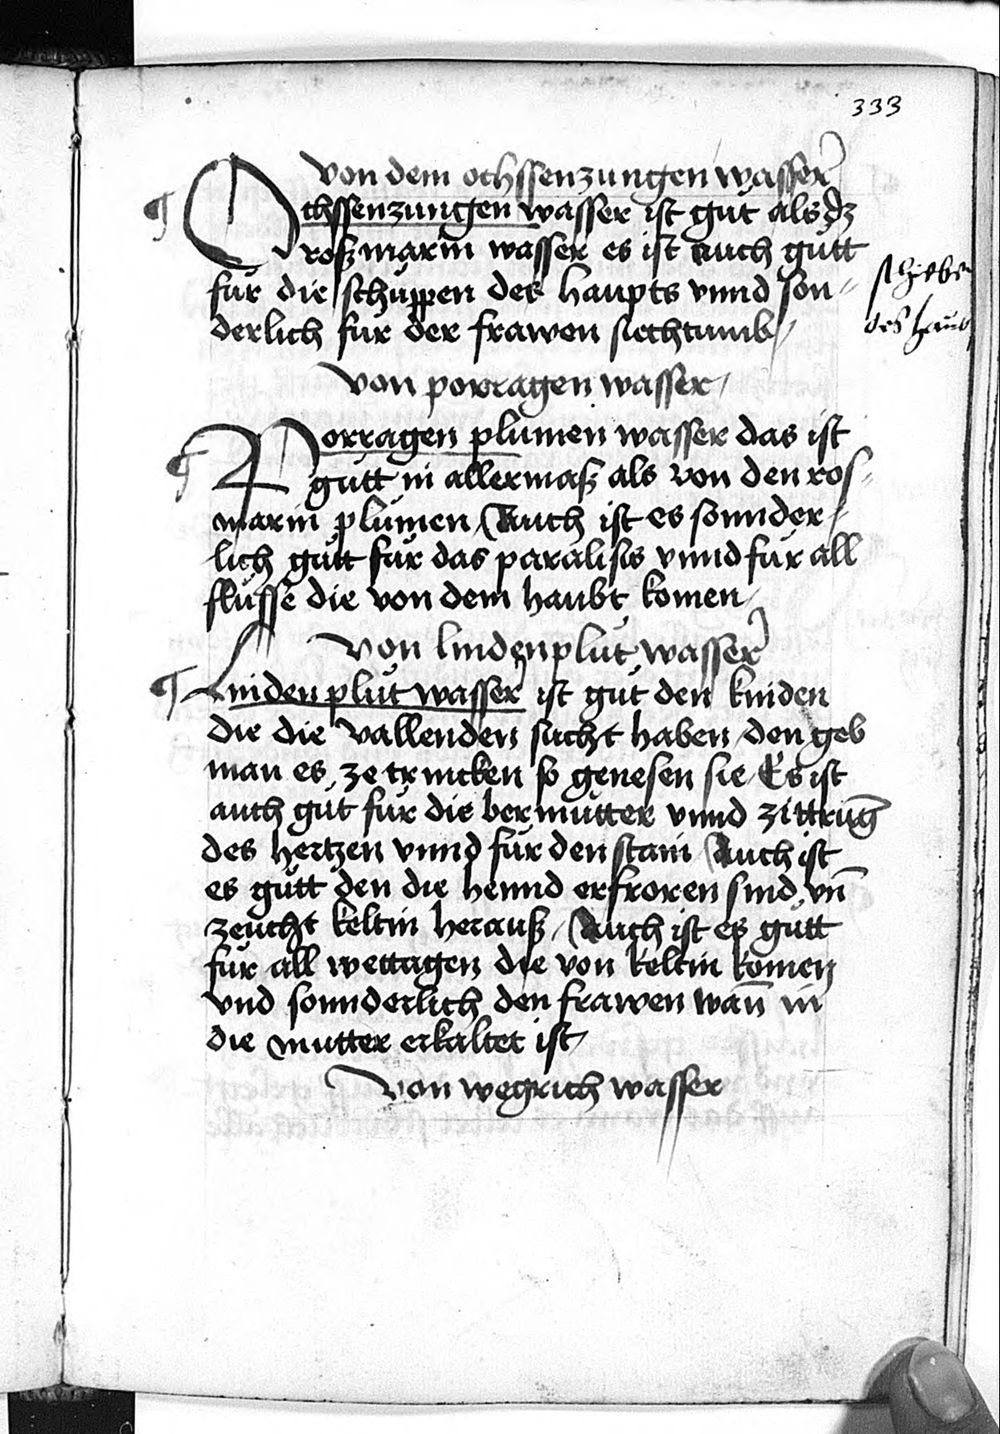 333
Von dem ochssenzungen wasser
¶ Ochssenzungen wasser ist gut als dz
roßmarin wasser es ist auch gutt
für die schuppen des haupts vnnd son-
derlich für der frawen siechtumb
des haubt
Von porragen wasser
¶ Porragen plumen wasser das ist
gutt in allermaß als von den ros-
marin plumen Auch ist es sonnder-
lich gutt für das paralisis vnnd für all
flüsse die von dem haubt komen
Von lindenplut wasser
¶ Lindenplut wasser ist gut den kinden
die die vallenden sucht haben den geb
man es ze trincken so genesen sie Es ist
auch gut für die bermutter vnnd zittrung
des hertzen vnnd für den stain Auch ist
es gutt den die hennd erfroren sind vn̄
zeucht keltin herauß Auch ist es gutt
für all wettagen die von keltin komen
vnd sonnderlich den frawen wan̄ in
die mutter erkaltet ist
Von wegrich wasser